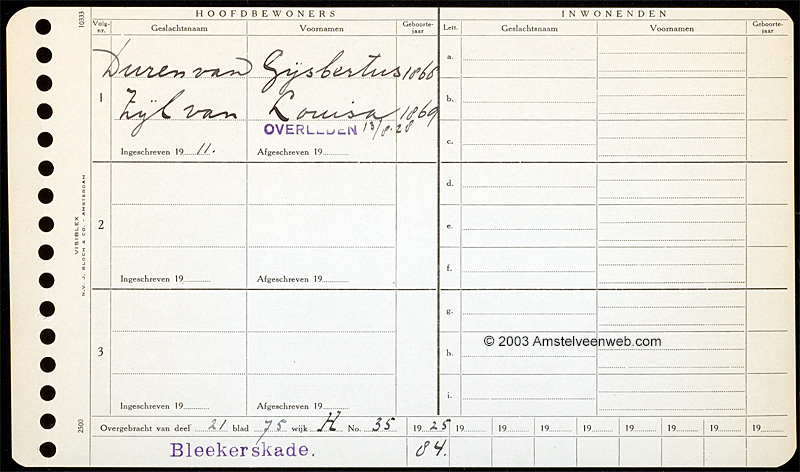 HOOFDBEWONERS
INWONENDEN
10333
Volg-nr.
Geslachtsnaam
Voornamen
Geboorte-jaar
Lett.
Geslachtsnaam
Voornamen
Geboorte-jaar
Duren van Gijsbertus 1866
1
Zÿl van Louisa 1869
OVERLEDEN 13/8.28
Ingeschreven 19 11.
Afgeschreven 19
a.
b.
c.
2
Ingeschreven 19
Afgeschreven 19
d.
e.
f.
VISIBLEX
N.V. J. BLOCH & CO. - AMSTERDAM
3
Ingeschreven 19
Afgeschreven 19
g.
© 2003 Amstelveenweb.com
h.
i.
2500
Overgebracht van deel 21 blad 75 wijk H No. 35 19 25 19 19 19 19 19 19 19 19
Bleekerskade. 84.